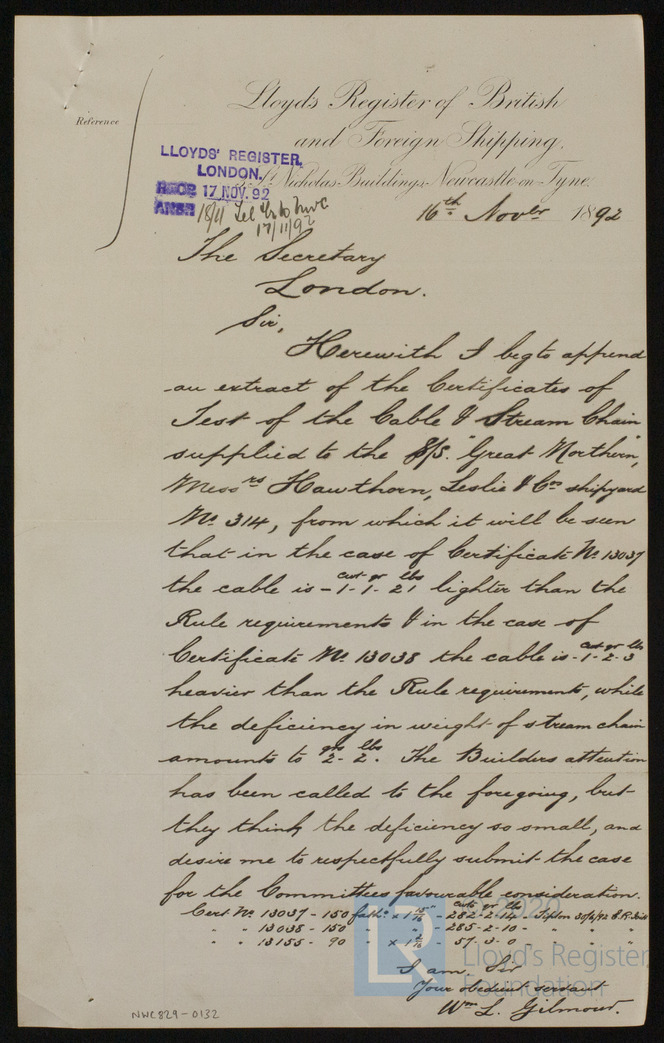 Lloyds Register of British
and Foreign Shipping.
Reference
LLOYDS' REGISTER,
LONDON.
St Nicholas Buildings, Newcastle-on-Tyne
RECD 17 NOV. 92
ANSR 18/11 Tel
17/11/92
16th Novbr 1892
The Secretary
London.
Sir,
Herewith I beg to append
an extract of the Certificates of
Test of the Cable & Stream Chain
supplied to the S/S. "Great Northern",
Messrs Hawthorn, Leslie & Cos shipyard
No. 314, from which it will be seen
that in the case of Certificate No. 13037
cwt qr lbs
the cable is - 1 - 1 - 21 lighter than the
Rule requirements & in the case of
cwt qr lbs
Certificate No. 13038 the cable is - 1 - 2 - 3
heavier than the Rule requirements, while
the deficiency in weight of stream chain
qrs lbs
amounts to 2 - 2. The Builders attention
has been called to the foregoing, but
they think the deficiency so small, and
desire me to respectfully submit the case
for the Committees favourable consideration.
cwts qr lbs
Cert No. 13037 - 150 faths x 1 15/16 - 282 - 2 - 14 - Tipton 30/6/92
" " 13038 - 150 " " " - 285 - 2 - 10 - " " "
" " 13155 - 90 " x 1 - 57 - 3 - 0 " " "
I am, Sir
Your obedient servant
Wm L. Gilmour.
© 2020
LR
Lloyd's Register
Foundation
NWC829-0132